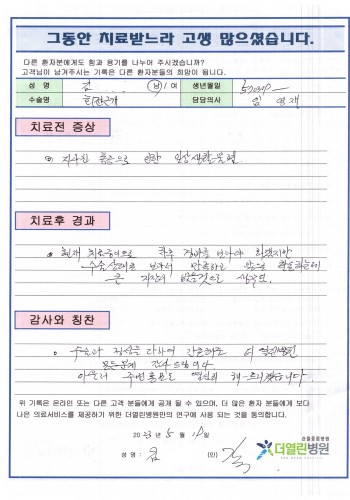 그동안 치료받느라 고생 많으셨습니다.
다른 환자분에게도 힘과 용기를 나누어 주시겠습니까?
고객님이 남겨주시는 기록은 다른 환자분들의 희망이 됩니다.
성 명 김 남 / 여 생년월일
수술명 회전근개 담당의사 임영재
치료전 증상
지속된 통증으로 인한 일상생활 불편
치료후 경과
현재 치료중이므로 향후 경과를 보아야 하겠지만
수술상태로 보아서 만족하고 있으며 활동하는데
큰 지장이 없을것으로 생각됨.
감사와 칭찬
수술과 정성을 다하여 간호해준 더열린병원
모든분께 감사드립니다
아울러 주변 홍보를 열심히 해드리겠습니다
위 기록은 온라인 또는 다른 고객 분들에게 공개 될 수 있으며, 더 많은 환자 분들에게 보다
나은 의료서비스를 제공하기 위한 더열린병원만의 연구에 사용 되는 것을 동의합니다.
2023 년 5 월 일
성 명 : 김 (인)
관절척추병원
더열린병원